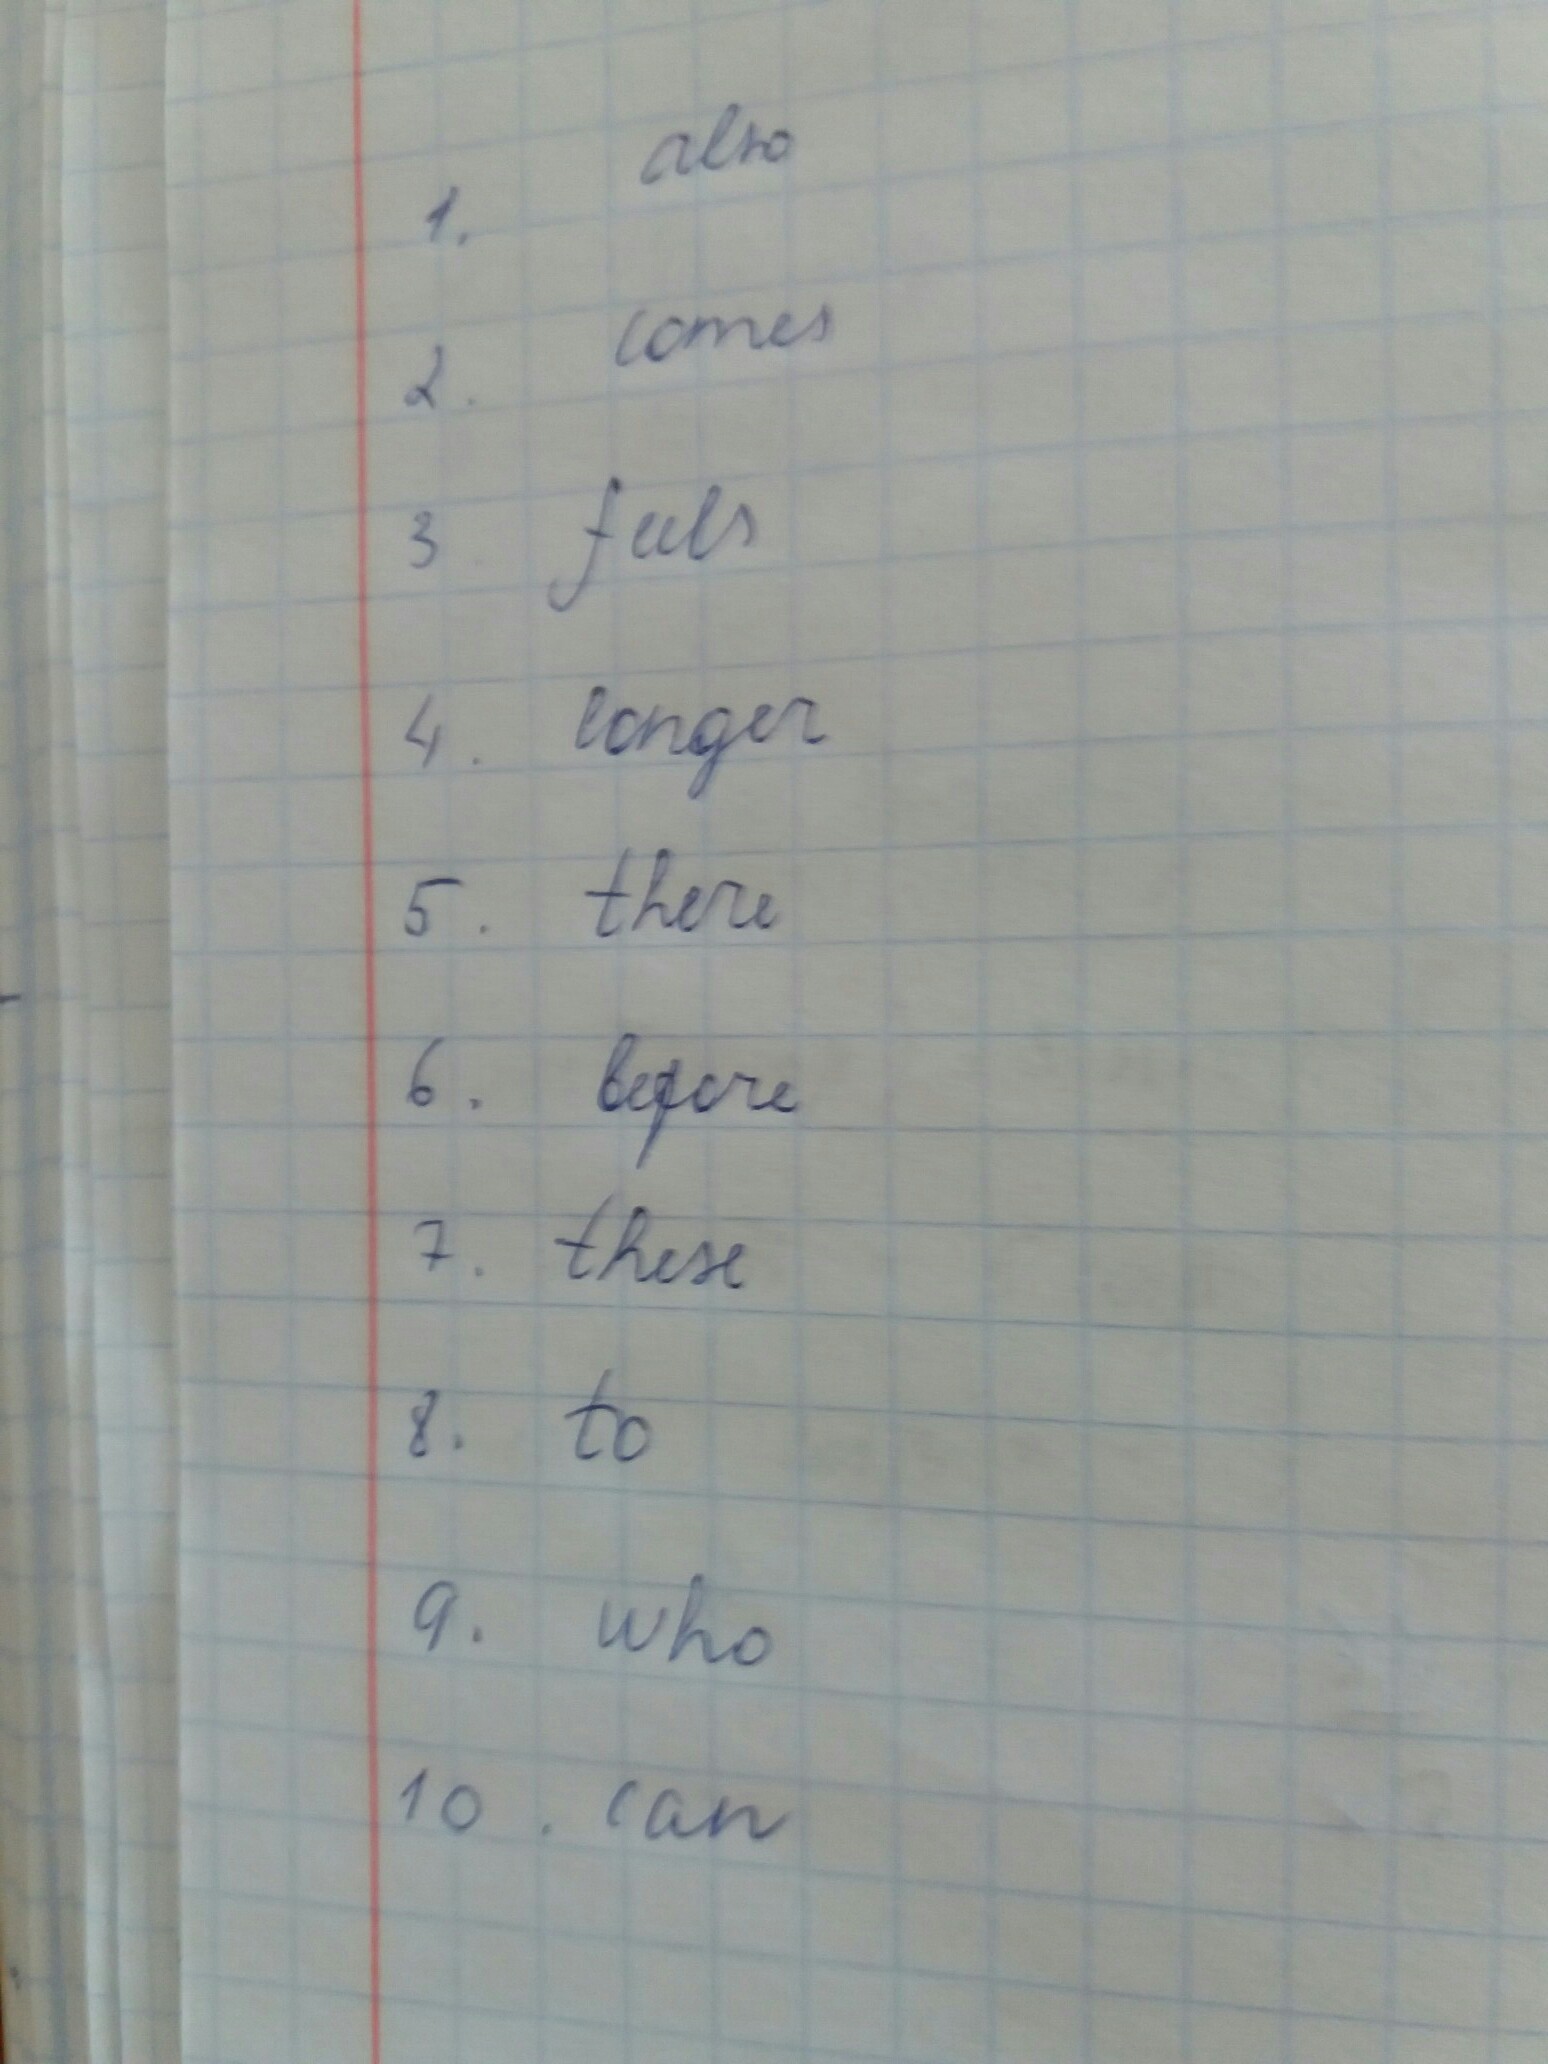 1. also
2. comes
3. feels
4. longer
5. there
6. before
7. these
8. to
9. who
10. can